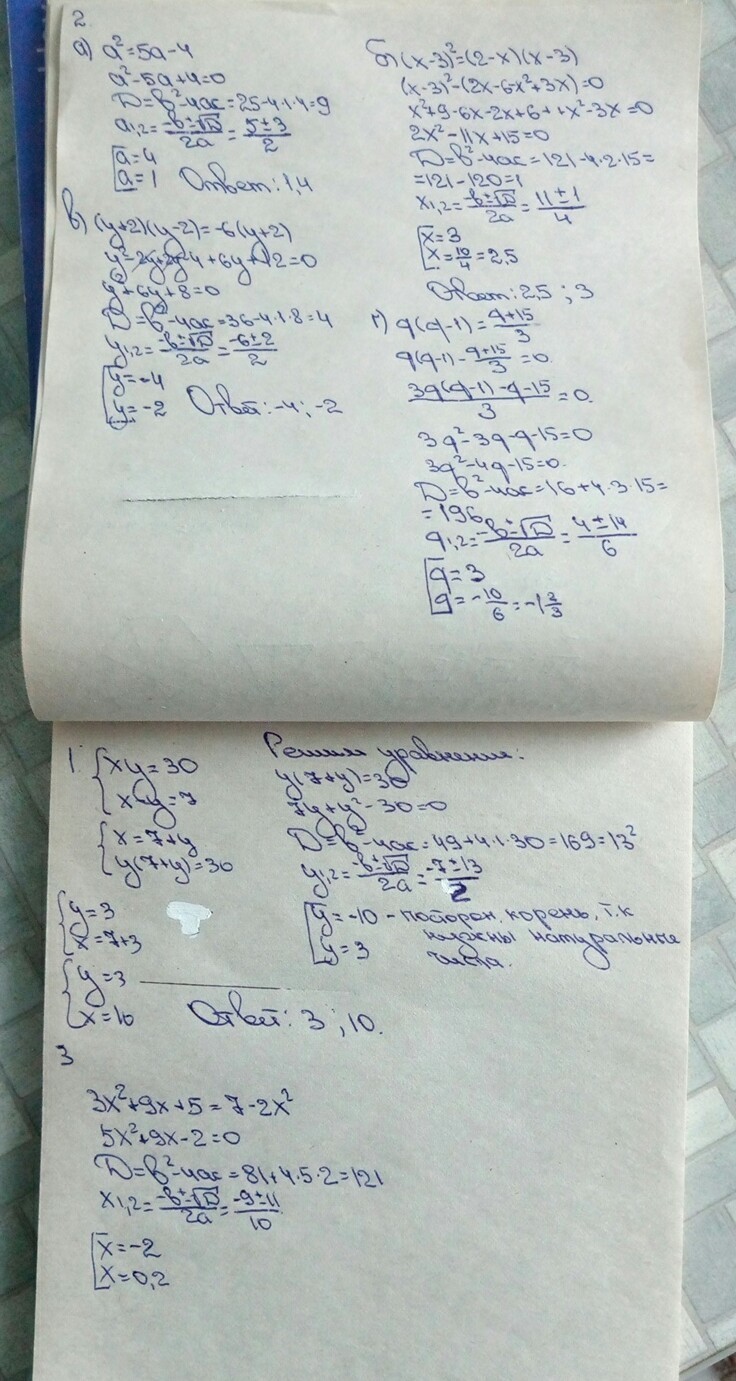 2.
а) a²=5a-4
a²-5a+4=0
D=b²-4ac=25-4·1·4=9
a1,2=(-b±√D)/2a=(5±3)/2
[a=4
[a=1 Ответ: 1,4
б) (x-3)²=(2-x)(x-3)
(x-3)²-(2x-6x²+3x)=0
x²+9-6x-2x+6++x²-3x=0
2x²-11x+15=0
D=b²-4ac=121-4·2·15=
=121-120=1
x1,2=(-b±√D)/2a=(11±1)/4
[x=3
[x=10/4=2,5
Ответ: 2,5; 3
в) (y+2)(y-2)=-6(y+2)
y²-2y+2y-4+6y+12=0
y²+6y+8=0
D=b²-4ac=36-4·1·8=4
y1,2=(-b±√D)/2a=(-6±2)/2
[y=-4
[y=-2 Ответ: -4; -2
г) q(q-1)=(q+15)/3
q(q-1)-(q+15)/3=0
(3q(q-1)-q-15)/3=0.
3q²-3q-q-15=0
3q²-4q-15=0.
D=b²-4ac=16+4·3·15=
=196
q1,2=(-b±√D)/2a=(4±14)/6
[q=3
[q=-10/6=-1 2/3
1. {xy=30
{x-y=7
{x=7+y
{y(7+y)=30
{y=3
{x=7+3
{y=3
{x=10
Решим уравнение:
y(7+y)=30
7y+y²-30=0
D=b²-4ac=49+4·1·30=169=13²
y1,2=(-b±√D)/2a=(-7±13)/2
[y=-10 - посторон. корень, т.к
[y=3 нужны натуральные
числа.
Ответ: 3; 10.
3
3x²+9x+5=7-2x²
5x²+9x-2=0
D=b²-4ac=81+4·5·2=121
x1,2=(-b±√D)/2a=(-9±11)/10
[x=-2
[x=0,2